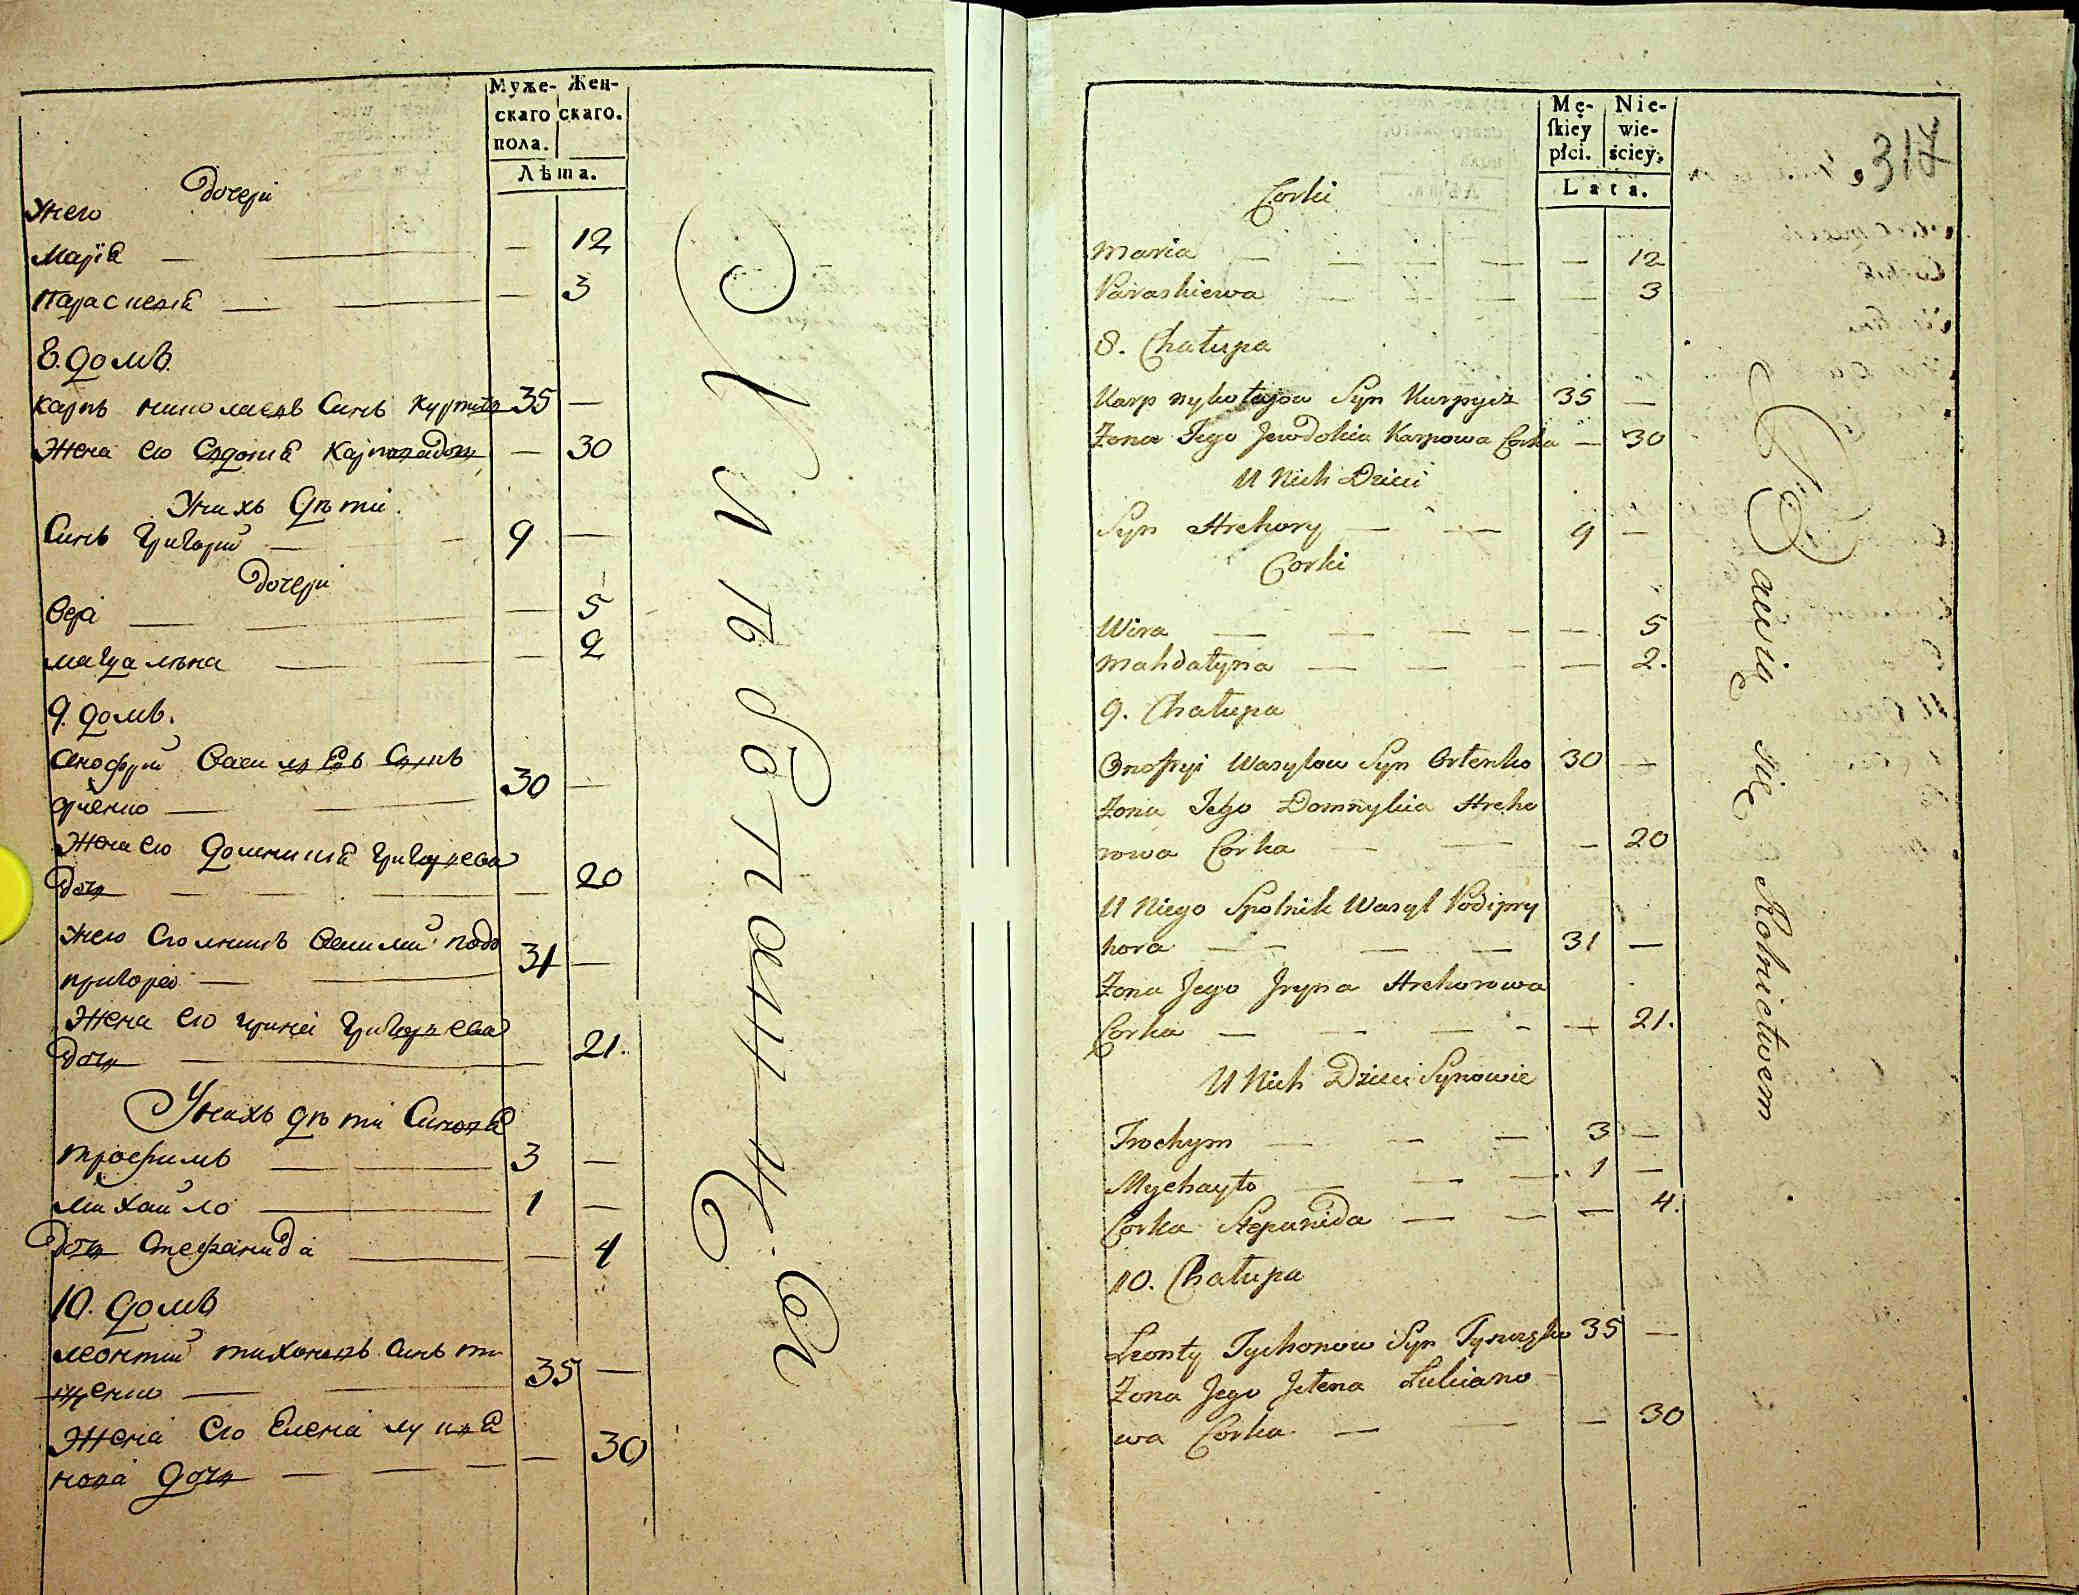 Муже- Жен-
скаго скаго.
пола.
Лѣта.
Унего Дочери
Марія — — 12
Параскевія — — 3
8. домъ.
Карпъ николаевъ Синъ 35 —
Жена его Евдокія Карповадочь — 30
Унихъ дѣти.
Синъ Григорій — 9 —
Дочери
Вера — — 5
магдалина — — 2
9. домъ.
Анофрій Василіевъ Сынъ
орленко — 30 —
Жена его Домникія Григорьева
Дочь — — 20
Унего сполникъ Василій подо
пригора — 31 —
Жена его Ирина Григорьева
Дочь — 21.
Унихъ дѣти Синовя
трофимъ — 3 —
михайло — 1 —
Дочь Стефанида — — 4
10. домъ
леонтій тихоновъ Синъ ти
щенко — 35 —
Жена его Елена лукия
нова Дочь — — 30
317
Mę- Nie-
ſkieÿ wie-
płci. ściey.
Lata.
Corki
Maria — — 12
Paraskiewa — — 3
8. Chałupa
Karp Mykołajow Syn Kurpyiz 35 —
Żona Jego Jewdokia Karpowa Corka — 30
U Nich Dzieci
Syn Hrehory — 9 —
Corki
Wira — — 5
Mahdałyna — — 2.
9. Chałupa
Onofryi Wasylow Syn Orlenko 30 —
Żona Jego Domnykia Hreho
rowa Corka — — 20
U Niego Spolnik Wasyl Podipry
hora — 31 —
Żona Jego Jryna Hrehorowa
Corka — — 21.
U Nich Dzieci Synowie
Trochym — 3 —
Mychayło — 1 —
Corka Stepanida — — 4.
10. Chałupa
Leonty Tychonow Syn 35 —
Żona Jego Jełena Łukiano
wa Corka — — 30
Bawią się Rolnictwem